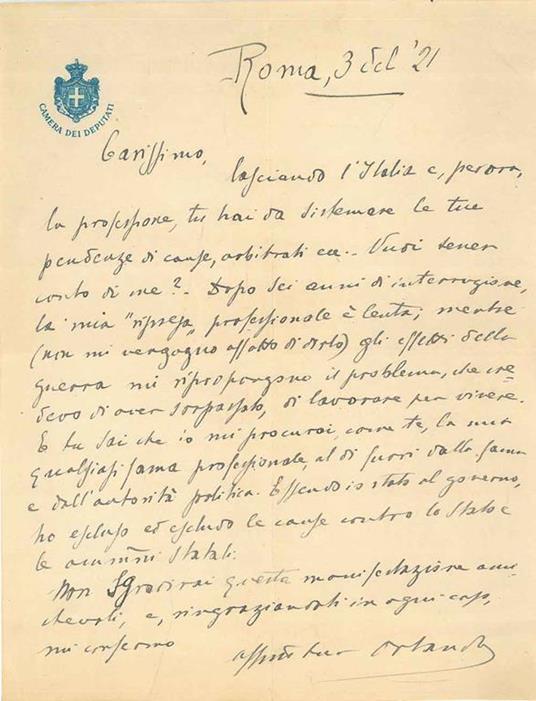 Roma, 3 '21
CAMERA DEI DEPUTATI
Carissimo,
lasciando l'Italia e, perora,
la professione, tu hai da sistemare le tue
pendenze di cause, arbitrati ecc.. Vuoi tener
conto di me? - Dopo sei anni di interruzione,
la mia "ripresa" professionale è lenta; mentre
(non mi vergogno affatto di dirlo) gli effetti della
guerra mi ripropongono il problema, che cre=
devo di aver sorpassato, di lavorare per vivere.
E tu sai che io mi procurai, come te, la mia
qualsiasi fama professionale, al di fuori dalla fama
e dall'autorità politica. Essendo io stato al governo,
ho escluso ed escludo le cause contro lo Stato e
le ammni statali.
Non questa manifestazione ami
chevole, e, ringraziandoti in ogni caso,
mi confermo
tuo Orlando